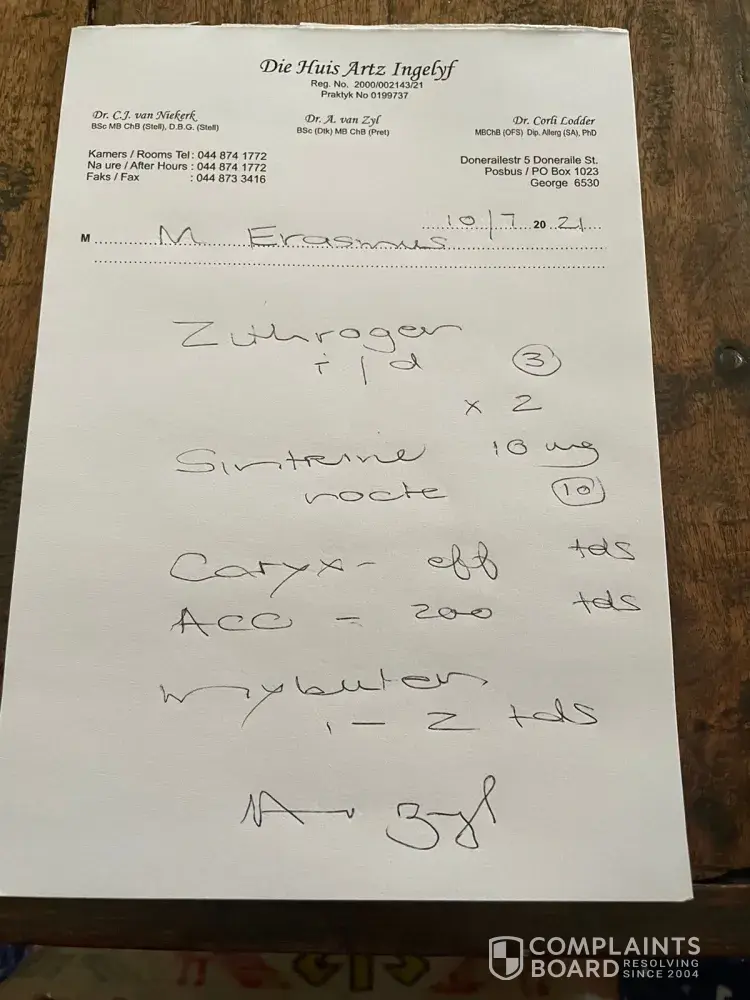 Die Huis Artz Ingelyf
Reg. No. 2000/002143/21
Praktyk No 0199737
Dr. C.J. van Niekerk
BSc MB ChB (Stell), D.B.G. (Stell)
Dr. A. van Zyl
BSc (Dtk) MB ChB (Pret)
Dr. Corli Lodder
MBChB (OFS) Dip. Allerg (SA), PhD
Kamers / Rooms Tel : 044 874 1772
Na ure / After Hours : 044 874 1772
Faks / Fax : 044 873 3416
Donerailestr 5 Doneraile St.
Posbus / PO Box 1023
George 6530
10/7 20 21
M M Erasmus
/ d 3
x 2
10 mg
nocte 10
eff tds
ACC - 200 tds
1 - 2 tds
Zyl
COMPLAINTS
BOARD RESOLVING
SINCE 2004